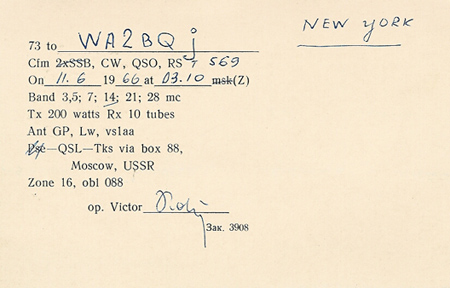 NEW YORK
73 to WA2BQj
Cfm 2xSSB, CW, QSO, RST 569
On 11.6 1966 at 03.10 msk(Z)
Band 3,5; 7; 14; 21; 28 mc
Tx 200 watts Rx 10 tubes
Ant GP, Lw, vs1aa
Pse—QSL—Tks via box 88,
Moscow, USSR
Zone 16, obl 088
op. Victor
Зак. 3908